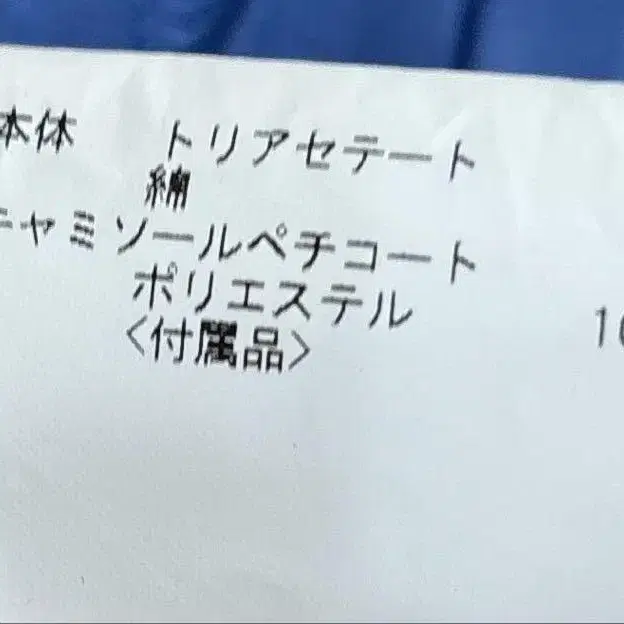 本体 トリアセテート
綿
キャミソールペチコート
ポリエステル 10
<付属品>